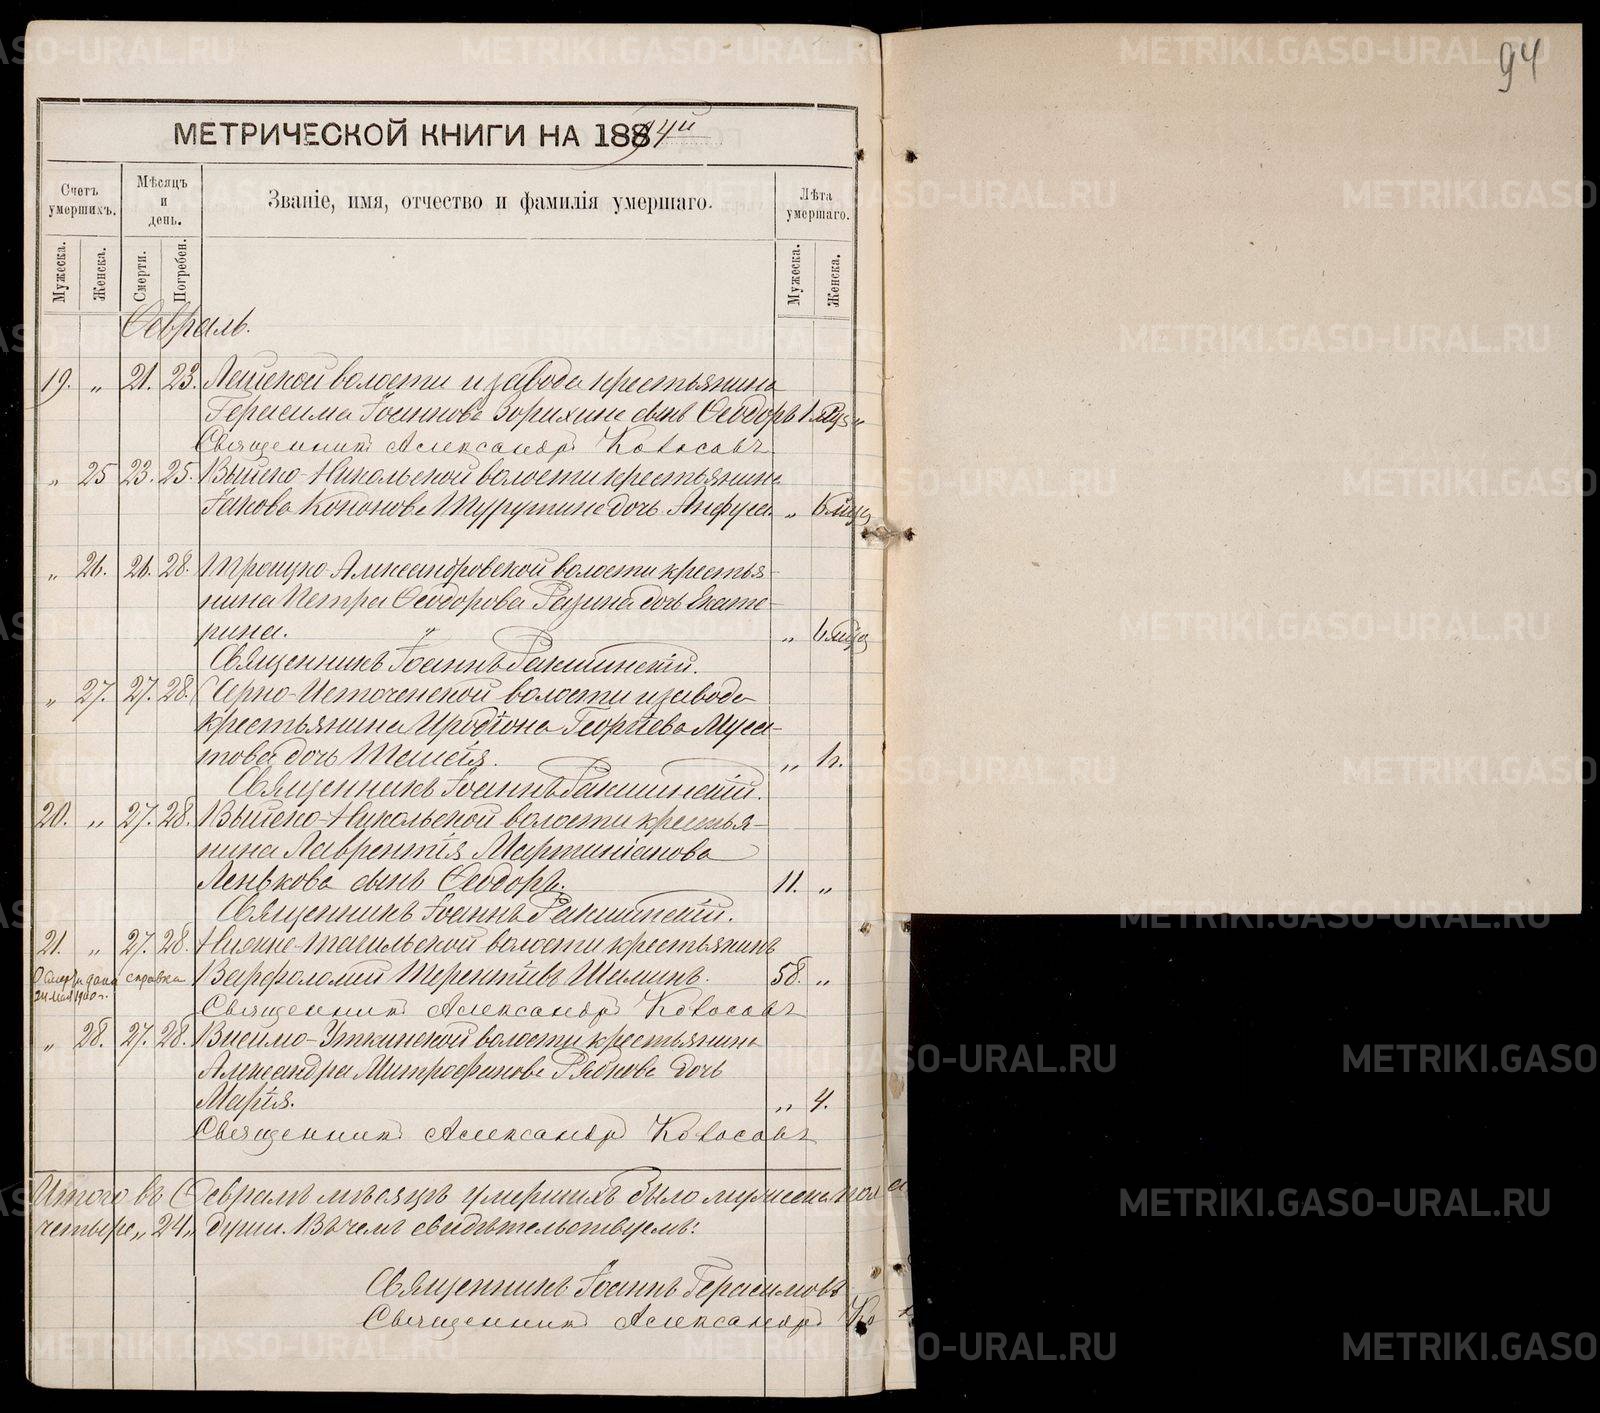 94
МЕТРИЧЕСКОЙ КНИГИ НА 1894й
Счетъ умершихъ.
Мѣсяцъ и день.
Званіе, имя, отчество и фамилія умершаго.
Лѣта умершаго.
Мужеска. Женска. Смерти. Погребен. Мужеска. Женска.
Февраль.
19. „ 21. 23. Лайской волости и завода крестьянина
Герасима Іоаннова Зорихина сынъ Ѳеодоръ 1 „
Священникъ Александръ Хохосовъ
„ 25 23. 25. Выйско-Никольской волости крестьянина
Іакова Кононова сына дочь Анфуса. „ 6 мѣс
„ 26. 26. 28. Троицко-Александровской волости крестья-
нина Петра Ѳеодорова Разина дочь Екате-
рина. „ 6 мѣс
Священникъ Іоаннъ
„ 27. 27. 28. Черно-Источенской волости и завода
крестьянина Иродіона Георгіева Муса-
това дочь Таисія. „ 1 г.
Священникъ Іоаннъ
20. „ 27. 28. Выйско-Никольской волости крестья-
нина Лаврентія Мартиніанова
Ленькова сынъ Ѳеодоръ. 11. „
Священникъ Іоаннъ
21. „ 27. 28. Нижне-Тагильской волости крестьянинъ
О смерти дана справка
24 мая 1900 г.
Варфоломей Терентіевъ Шаминъ. 58. „
Священникъ Александръ
„ 28. 27. 28. Висимо-Уткинской волости крестьянина
Александра Митрофанова Рябкова дочь
Марія. „ 4.
Священникъ Александръ
Итого въ Февралѣ мѣсяцѣ умершихъ было мужеска пола
четыре „24„ души. Въ чемъ свидѣтельствуемъ:
Священникъ Іоаннъ Герасимовъ
Священникъ Александръ
METRIKI.GASO-URAL.RU